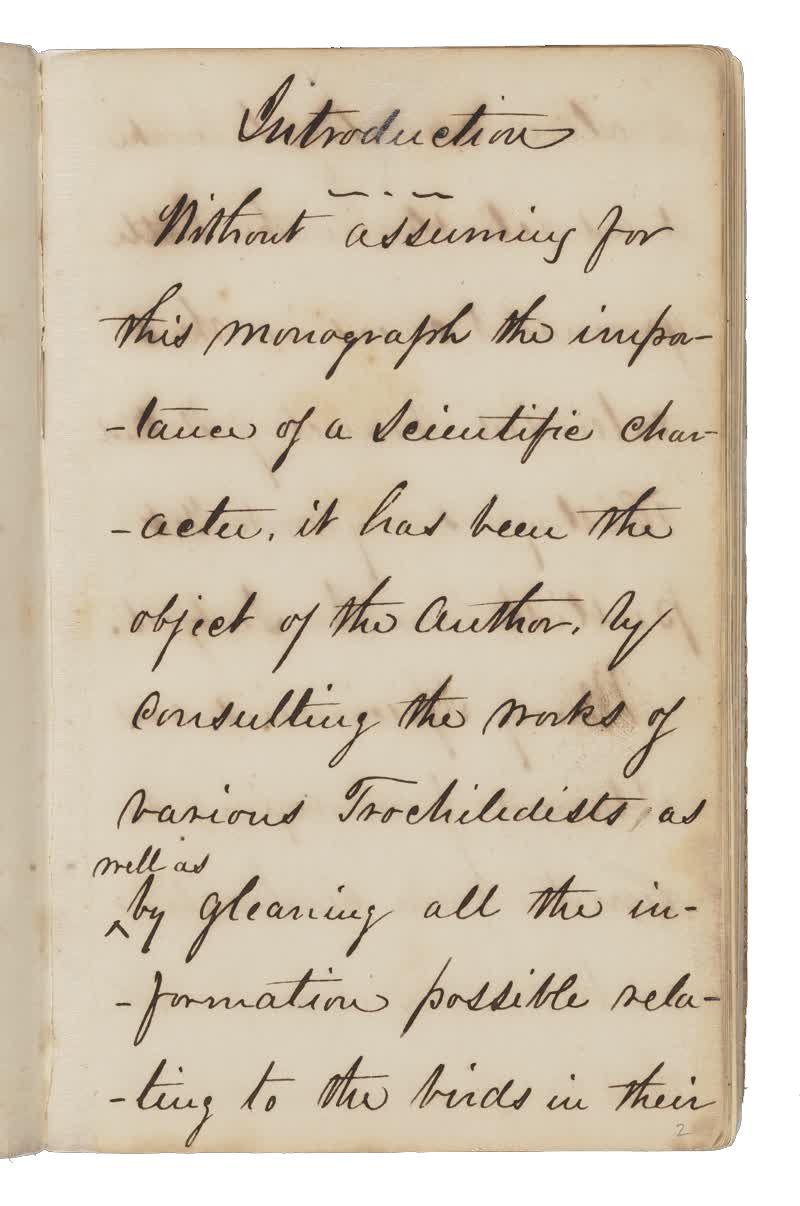 Introduction
Without assuming for
this monograph the impor-
-tance of a Scientific char-
-acter, it has been the
object of the Author, by
Consulting the works of
various Trochiledists, as
well as
^by gleaning all the in-
-formation possible rela-
-ting to the birds in their
2